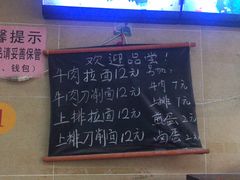 馨提示
品请妥善保管
、钱包）
1
欢迎品尝！
牛肉拉面12元
牛肉刀削面12元
上排拉面12元
上排刀削面12元
另加：
牛肉7元
上排7元
煎蛋2元
卤蛋2元